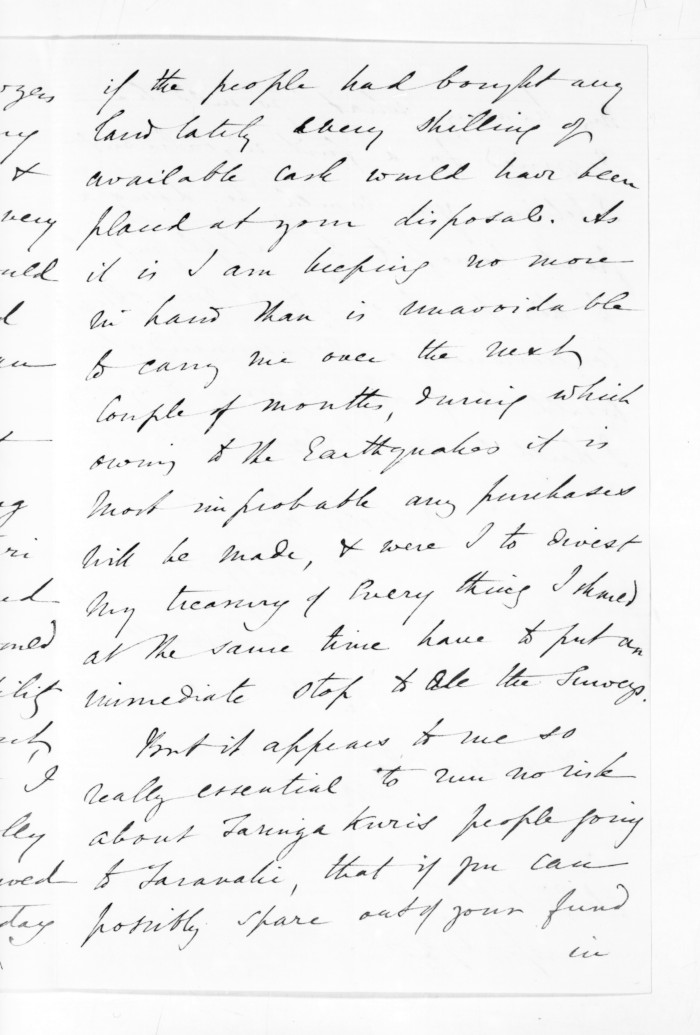 ozers
ny
&
very
ould
d
an
t
ng
ri
ed
oned
ility
ch,
I
lly
owed
day
if the people had bought any
land lately every shilling of
available cash would have been
placed at your disposal. As
it is I am keeping no more
in hand than is unavoidable
to carry me over the next
couple of months, during which
owing to the Earthquakes it is
most improbable any purchases
will be made, & were I to divest
my treasury of every thing I should
at the same time have to put an
immediate stop to all the Surveys.
But it appears to me so
really essential to run no risk
about Taringa Kuris people going
to Taranaki, that if you can
possibly spare out of your fund
in